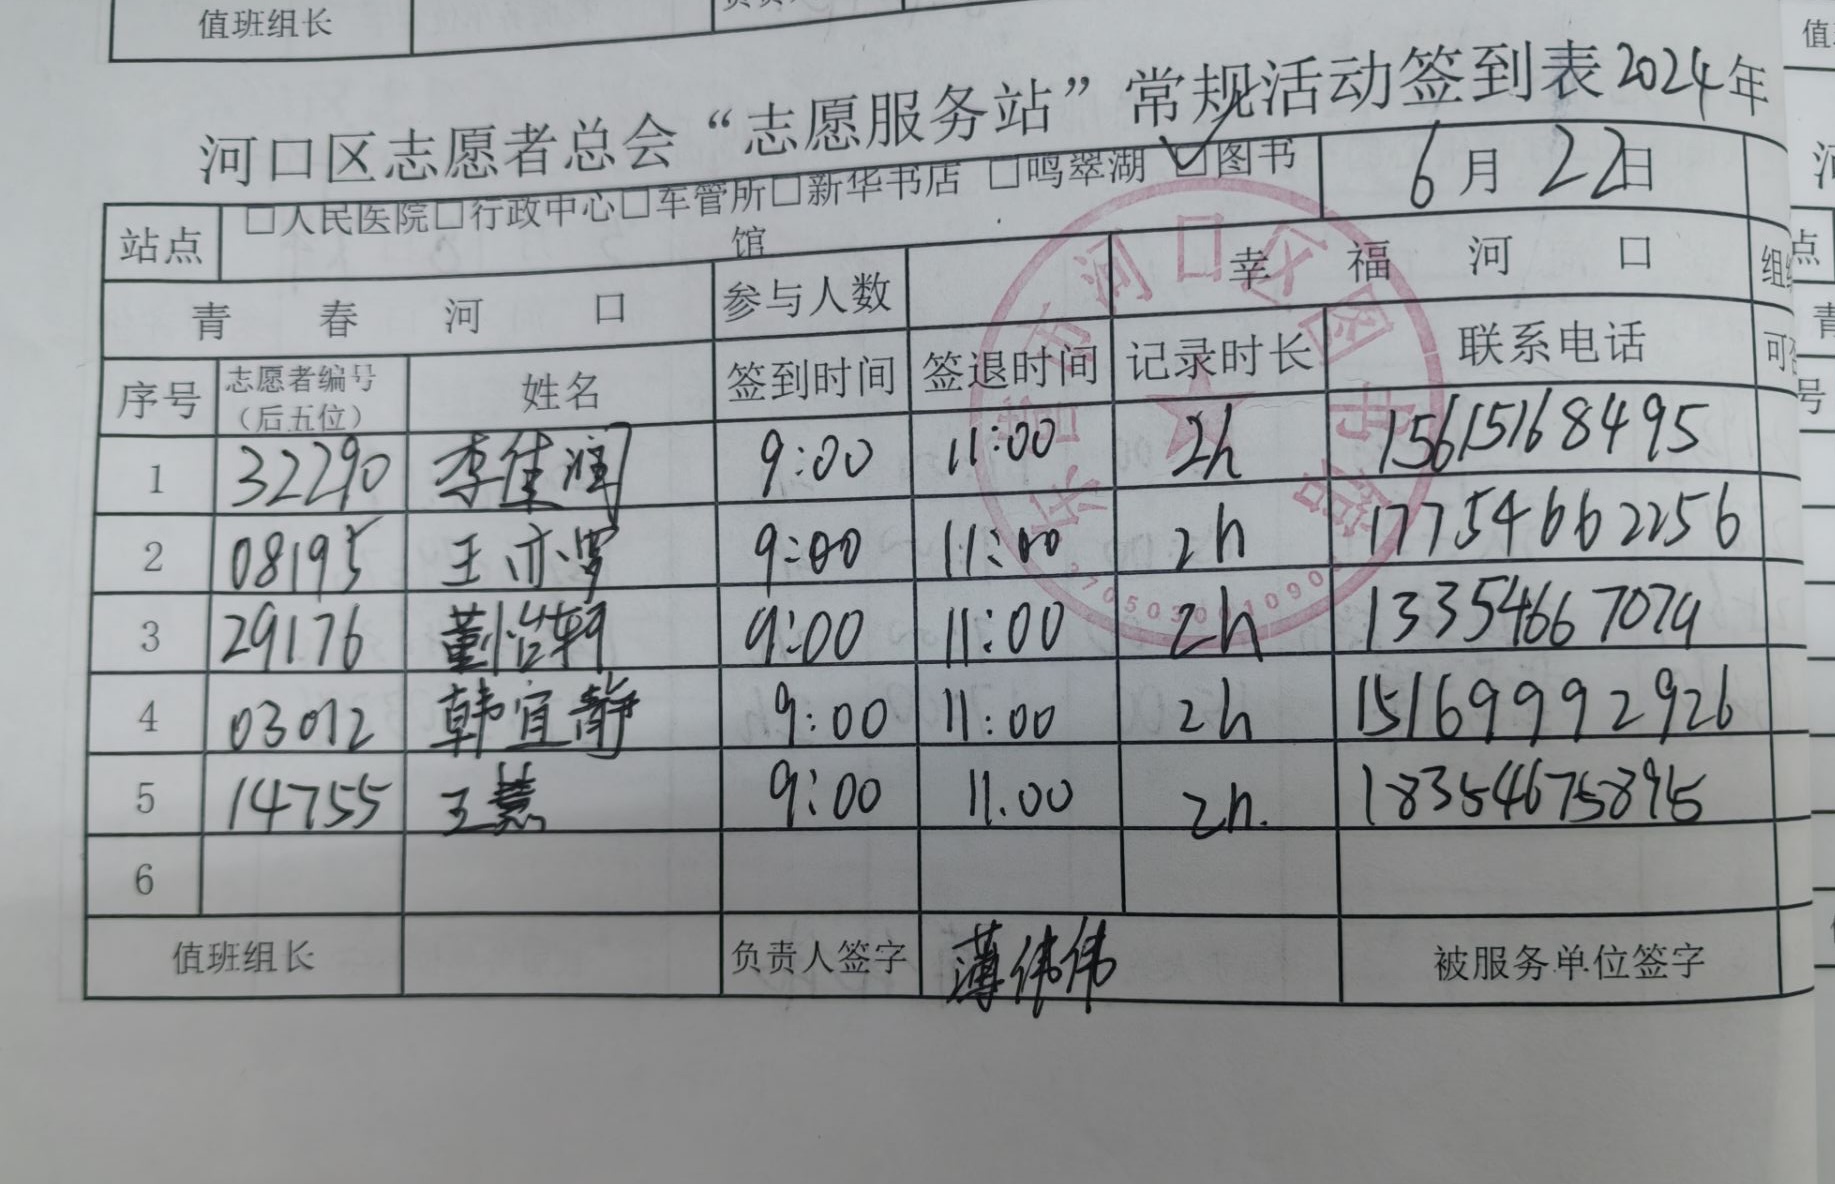 值班组长
河口区志愿者总会“志愿服务站”常规活动签到表2024年
站点 □人民医院□行政中心□车管所□新华书店 □鸣翠湖 ☑图书馆 6月22日
青春河口 参与人数 幸福河口
序号 志愿者编号（后五位） 姓名 签到时间 签退时间 记录时长 联系电话
1 32290 李佳润 9:00 11:00 2h 15615168495
2 08195 王亦 9:00 11:00 2h 17754662256
3 29176 9:00 11:00 2h 13354667074
4 03012 韩宜静 9:00 11:00 2h 15169992926
5 14755 王慧 9:00 11.00 2h. 18354675895
6
值班组长 负责人签字 薄伟伟 被服务单位签字